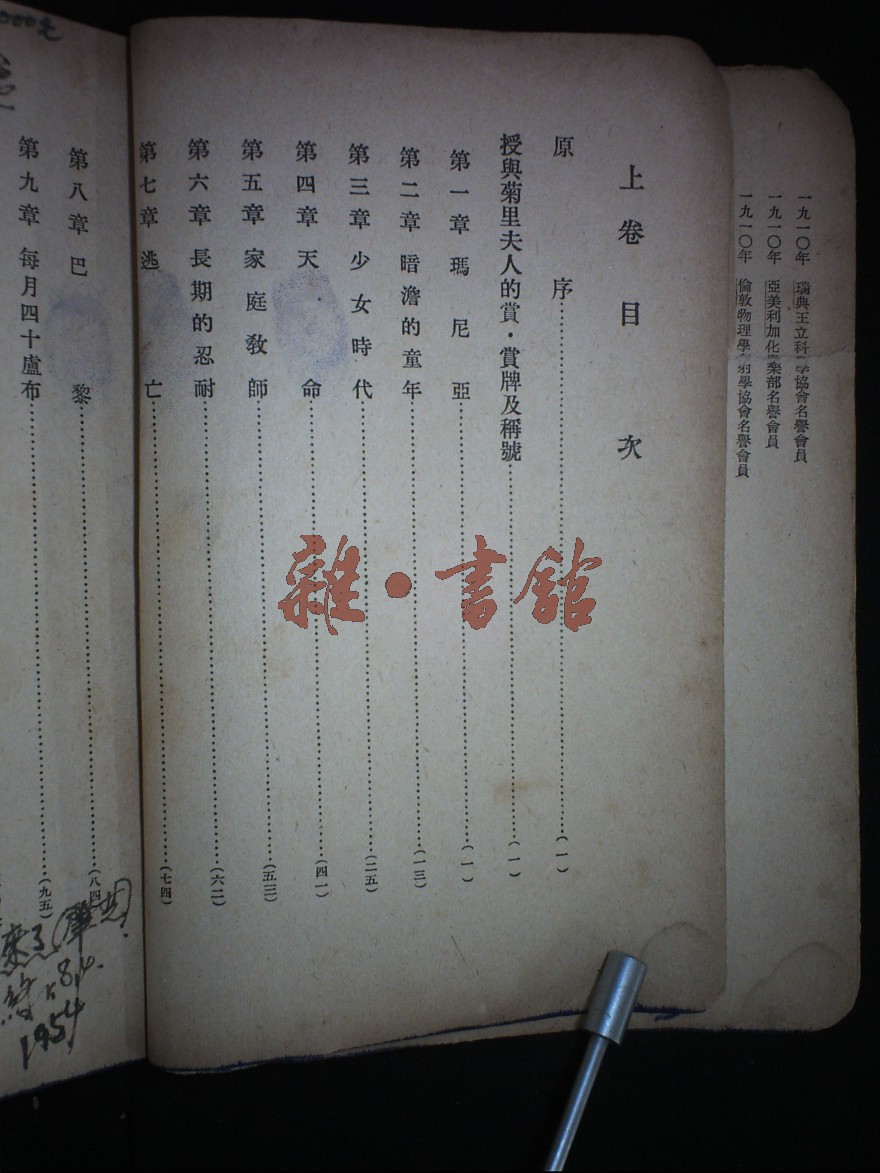 一九一〇年 瑞典王立科學協會名譽會員
一九一〇年 亞美利加化樂部名譽會員
一九一〇年 倫敦物理學協會名譽會員
上卷目次
原序……(一)
授與菊里夫人的賞·賞牌及稱號……(一)
第一章 瑪尼亞……(一)
第二章 暗澹的童年……(一三)
第三章 少女時代……(二五)
第四章 天命……(四一)
第五章 家庭教師……(五三)
第六章 長期的忍耐……(六二)
第七章 逃亡……(七四)
第八章 巴黎……(八四)
第九章 每月四十盧布……(九五)
雜·書館
來了
1954